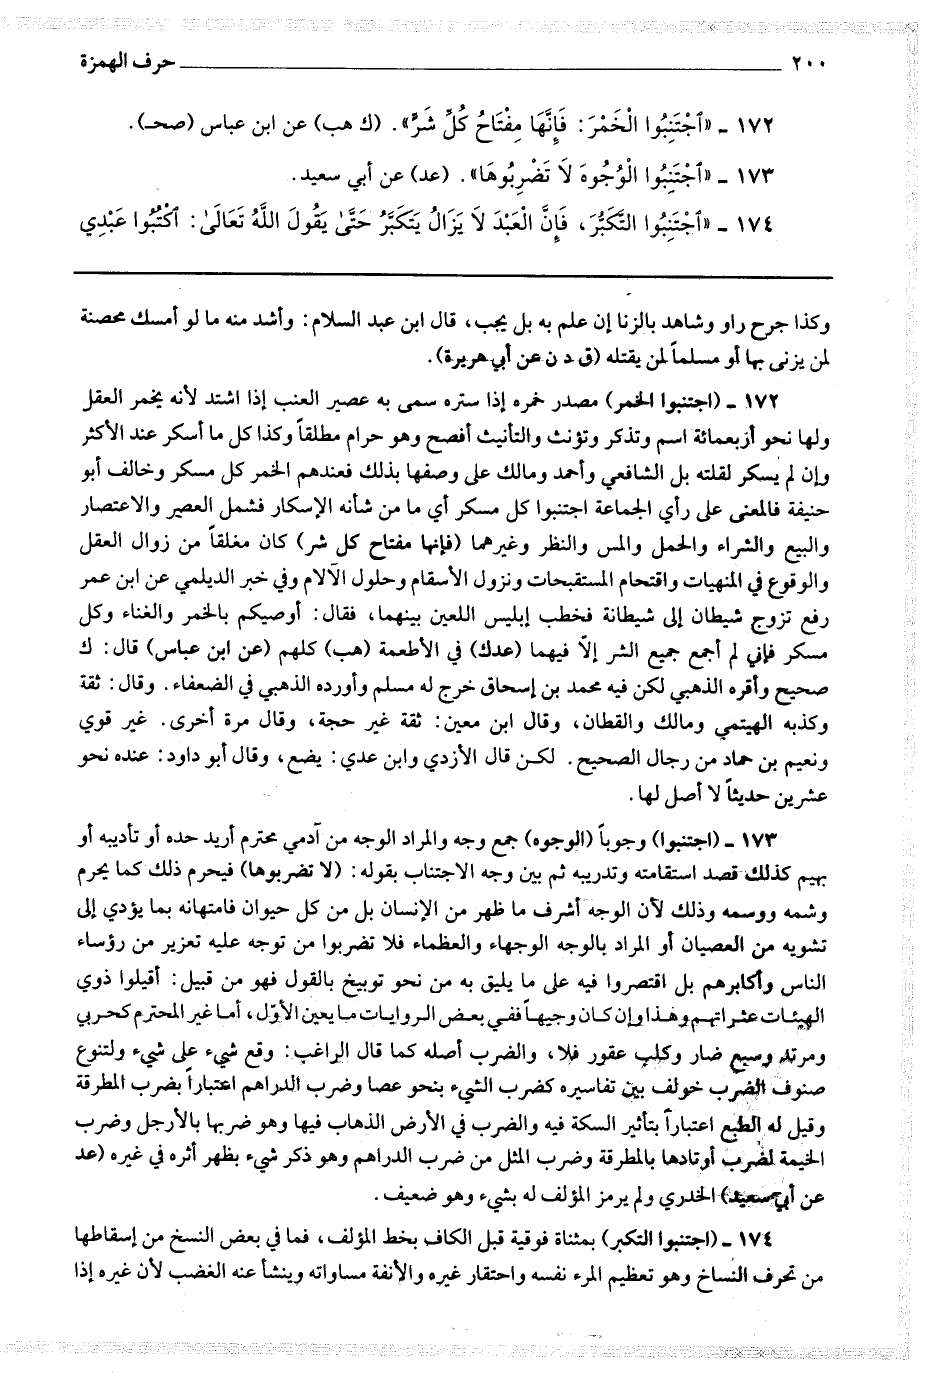 ٢٠٠ ــــــــــــــــــــــــــــــــــــــ حرف الهمزة
١٧٢ ـ «ٱجْتَنِبُوا الْخَمْرَ: فَإِنَّهَا مِفْتَاحُ كُلِّ شَرٍّ». (ك هب) عن ابن عباس (صحـ).
١٧٣ ـ «ٱجْتَنِبُوا الْوُجُوهَ لَا تَضْرِبُوهَا». (عد) عن أبي سعيد.
١٧٤ ـ «ٱجْتَنِبُوا التَّكَبُّرَ، فَإِنَّ الْعَبْدَ لَا يَزَالُ يَتَكَبَّرُ حَتَّىٰ يَقُولَ اللَّهُ تَعَالَىٰ: ٱكْتُبُوا عَبْدِي
وكذا جرح راو وشاهد بالزنا إن علم به بل يجب، قال ابن عبد السلام: وأشد منه ما لو أمسك محصنة
لمن يزنى بها أو مسلماً لمن يقتله (ق د ن عن أبي هريرة).
١٧٢ ـ (اجتنبوا الخمر) مصدر خمره إذا ستره سمى به عصير العنب إذا اشتد لأنه يخمر العقل
ولها نحو أربعمائة اسم وتذكر وتؤنث والتأنيث أفصح وهو حرام مطلقاً وكذا كل ما أسكر عند الأكثر
وإن لم يسكر لقلته بل الشافعي وأحمد ومالك على وصفها بذلك فعندهم الخمر كل مسكر وخالف أبو
حنيفة فالمعنى على رأي الجماعة اجتنبوا كل مسكر أي ما من شأنه الإسكار فشمل العصير والاعتصار
والبيع والشراء والحمل والمس والنظر وغيرهما (فإنها مفتاح كل شر) كان مغلقاً من زوال العقل
والوقوع في المنهيات واقتحام المستقبحات ونزول الأسقام وحلول الآلام وفي خبر الديلمي عن ابن عمر
رفع تزوج شيطان إلى شيطانة فخطب إبليس اللعين بينهما، فقال: أوصيكم بالخمر والغناء وكل
مسكر فإني لم أجمع جميع الشر إلّا فيهما (عدك) في الأطعمة (هب) كلهم (عن ابن عباس) قال: ك
صحيح وأقره الذهبي لكن فيه محمد بن إسحاق خرج له مسلم وأورده الذهبي في الضعفاء. وقال: ثقة
وكذبه الهيتمي ومالك والقطان، وقال ابن معين: ثقة غير حجة، وقال مرة أخرى. غير قوي
ونعيم بن حماد من رجال الصحيح. لكن قال الأزدي وابن عدي: يضع، وقال أبو داود: عنده نحو
عشرين حديثاً لا أصل لها.
١٧٣ ـ (اجتنبوا) وجوباً (الوجوه) جمع وجه والمراد الوجه من آدمي محترم أريد حده أو تأديبه أو
بهيم كذلك قصد استقامته وتدريبه ثم بين وجه الاجتناب بقوله: (لا تضربوها) فيحرم ذلك كما يحرم
وشمه ووسمه وذلك لأن الوجه أشرف ما ظهر من الإنسان بل من كل حيوان فامتهانه بما يؤدي إلى
تشويه من العصيان أو المراد بالوجه الوجهاء والعظماء فلا تضربوا من توجه عليه تعزير من رؤساء
الناس وأكابرهم بل اقتصروا فيه على ما يليق به من نحو توبيخ بالقول فهو من قبيل: أقيلوا ذوي
الهيئات عثراتهم وهذا وإن كان وجيهاً ففي بعض الروايات ما يعين الأوّل، أما غير المحترم كحربي
ومرتد وسبع ضار وكلب عقور فلا، والضرب أصله كما قال الراغب: وقع شيء على شيء ولتنوع
صنوف الضرب خولف بين تفاسيره كضرب الشيء بنحو عصا وضرب الدراهم اعتباراً بضرب المطرقة
وقيل له الطبع اعتباراً بتأثير السكة فيه والضرب في الأرض الذهاب فيها وهو ضربها بالأرجل وضرب
الخيمة لضرب أوتادها بالمطرقة وضرب المثل من ضرب الدراهم وهو ذكر شيء يظهر أثره في غيره (عد
عن أبي سعيد) الخدري ولم يرمز المؤلف له بشيء وهو ضعيف.
١٧٤ ـ (اجتنبوا التكبر) بمثناة فوقية قبل الكاف بخط المؤلف، فما في بعض النسخ من إسقاطها
من تحرف النساخ وهو تعظيم المرء نفسه واحتقار غيره والأنفة مساواته وينشأ عنه الغضب لأن غيره إذا